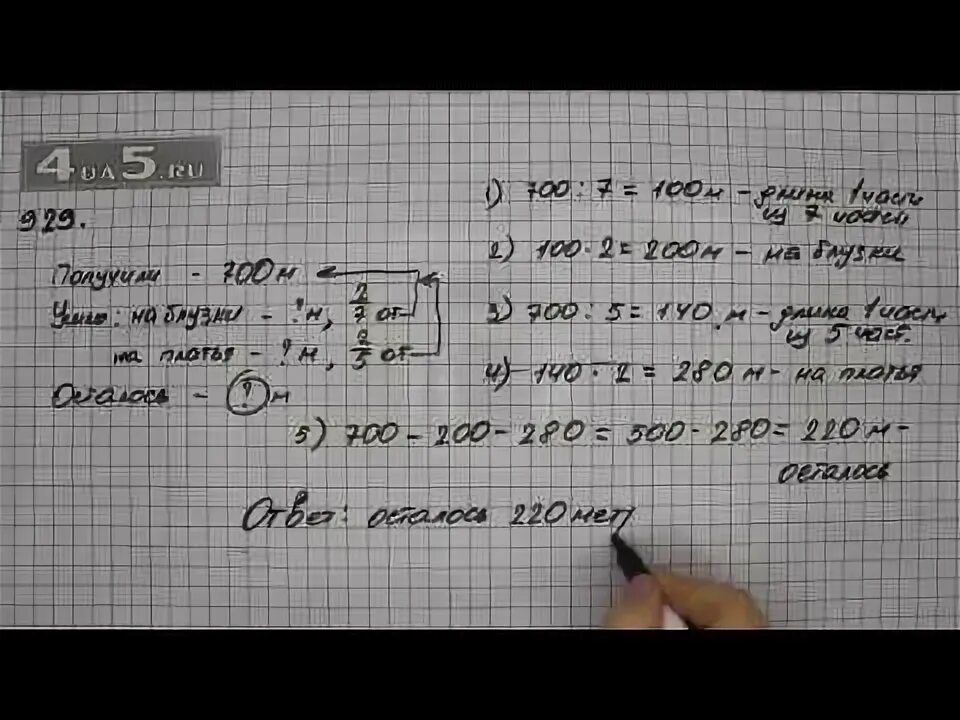 4 на 5.RU
929.
Получили - 700 м
Ушло: на блузки - ? м, 2/7 от
на платья - ? м, 2/5 от
Осталось - ? м
1) 700 : 7 = 100 м - длина 1 части
из 7 частей
2) 100 · 2 = 200 м - на блузки
3) 700 : 5 = 140 м - длина 1 части
из 5 част.
4) 140 · 2 = 280 м - на платья
5) 700 - 200 - 280 = 500 - 280 = 220 м -
осталось
Ответ: осталось 220 мет